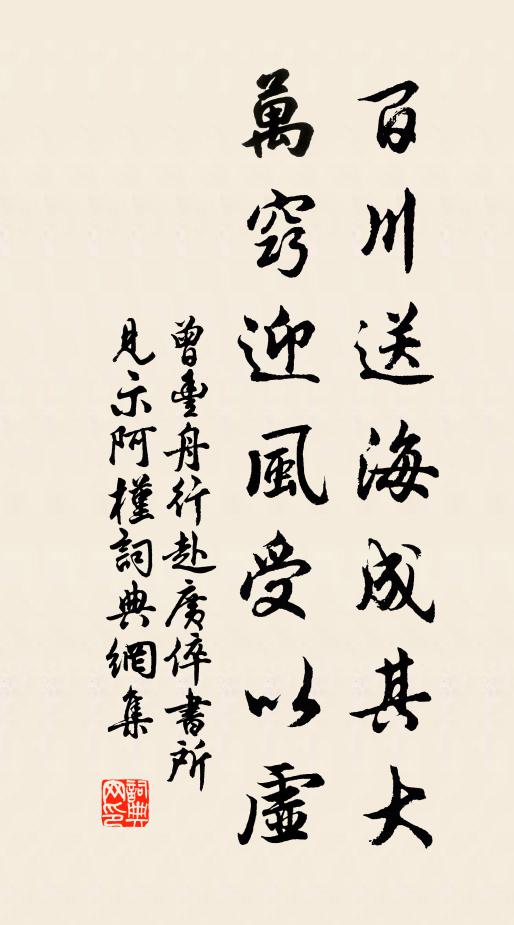 百川送海成其大
萬竅迎風受以虛
曾豐舟行赴廣倅書所
見示阿槿詞典網集
詞典網印